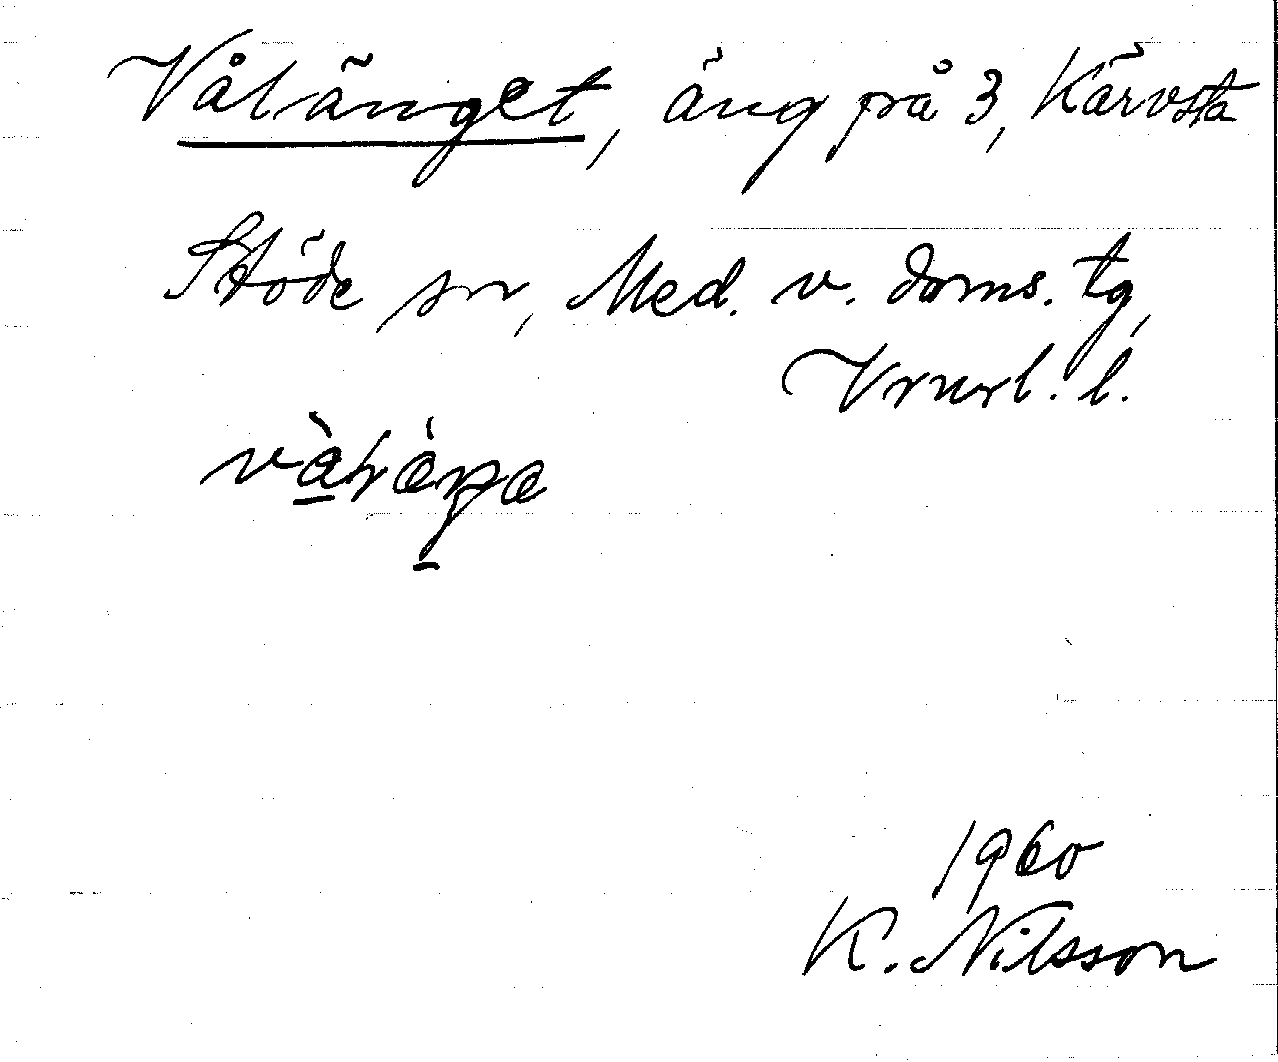 Vålänget, äng på 3, Kärvsta
Stöde sn, Med. v. doms. tg,
Vnorl. l.
1960
K. Nilsson